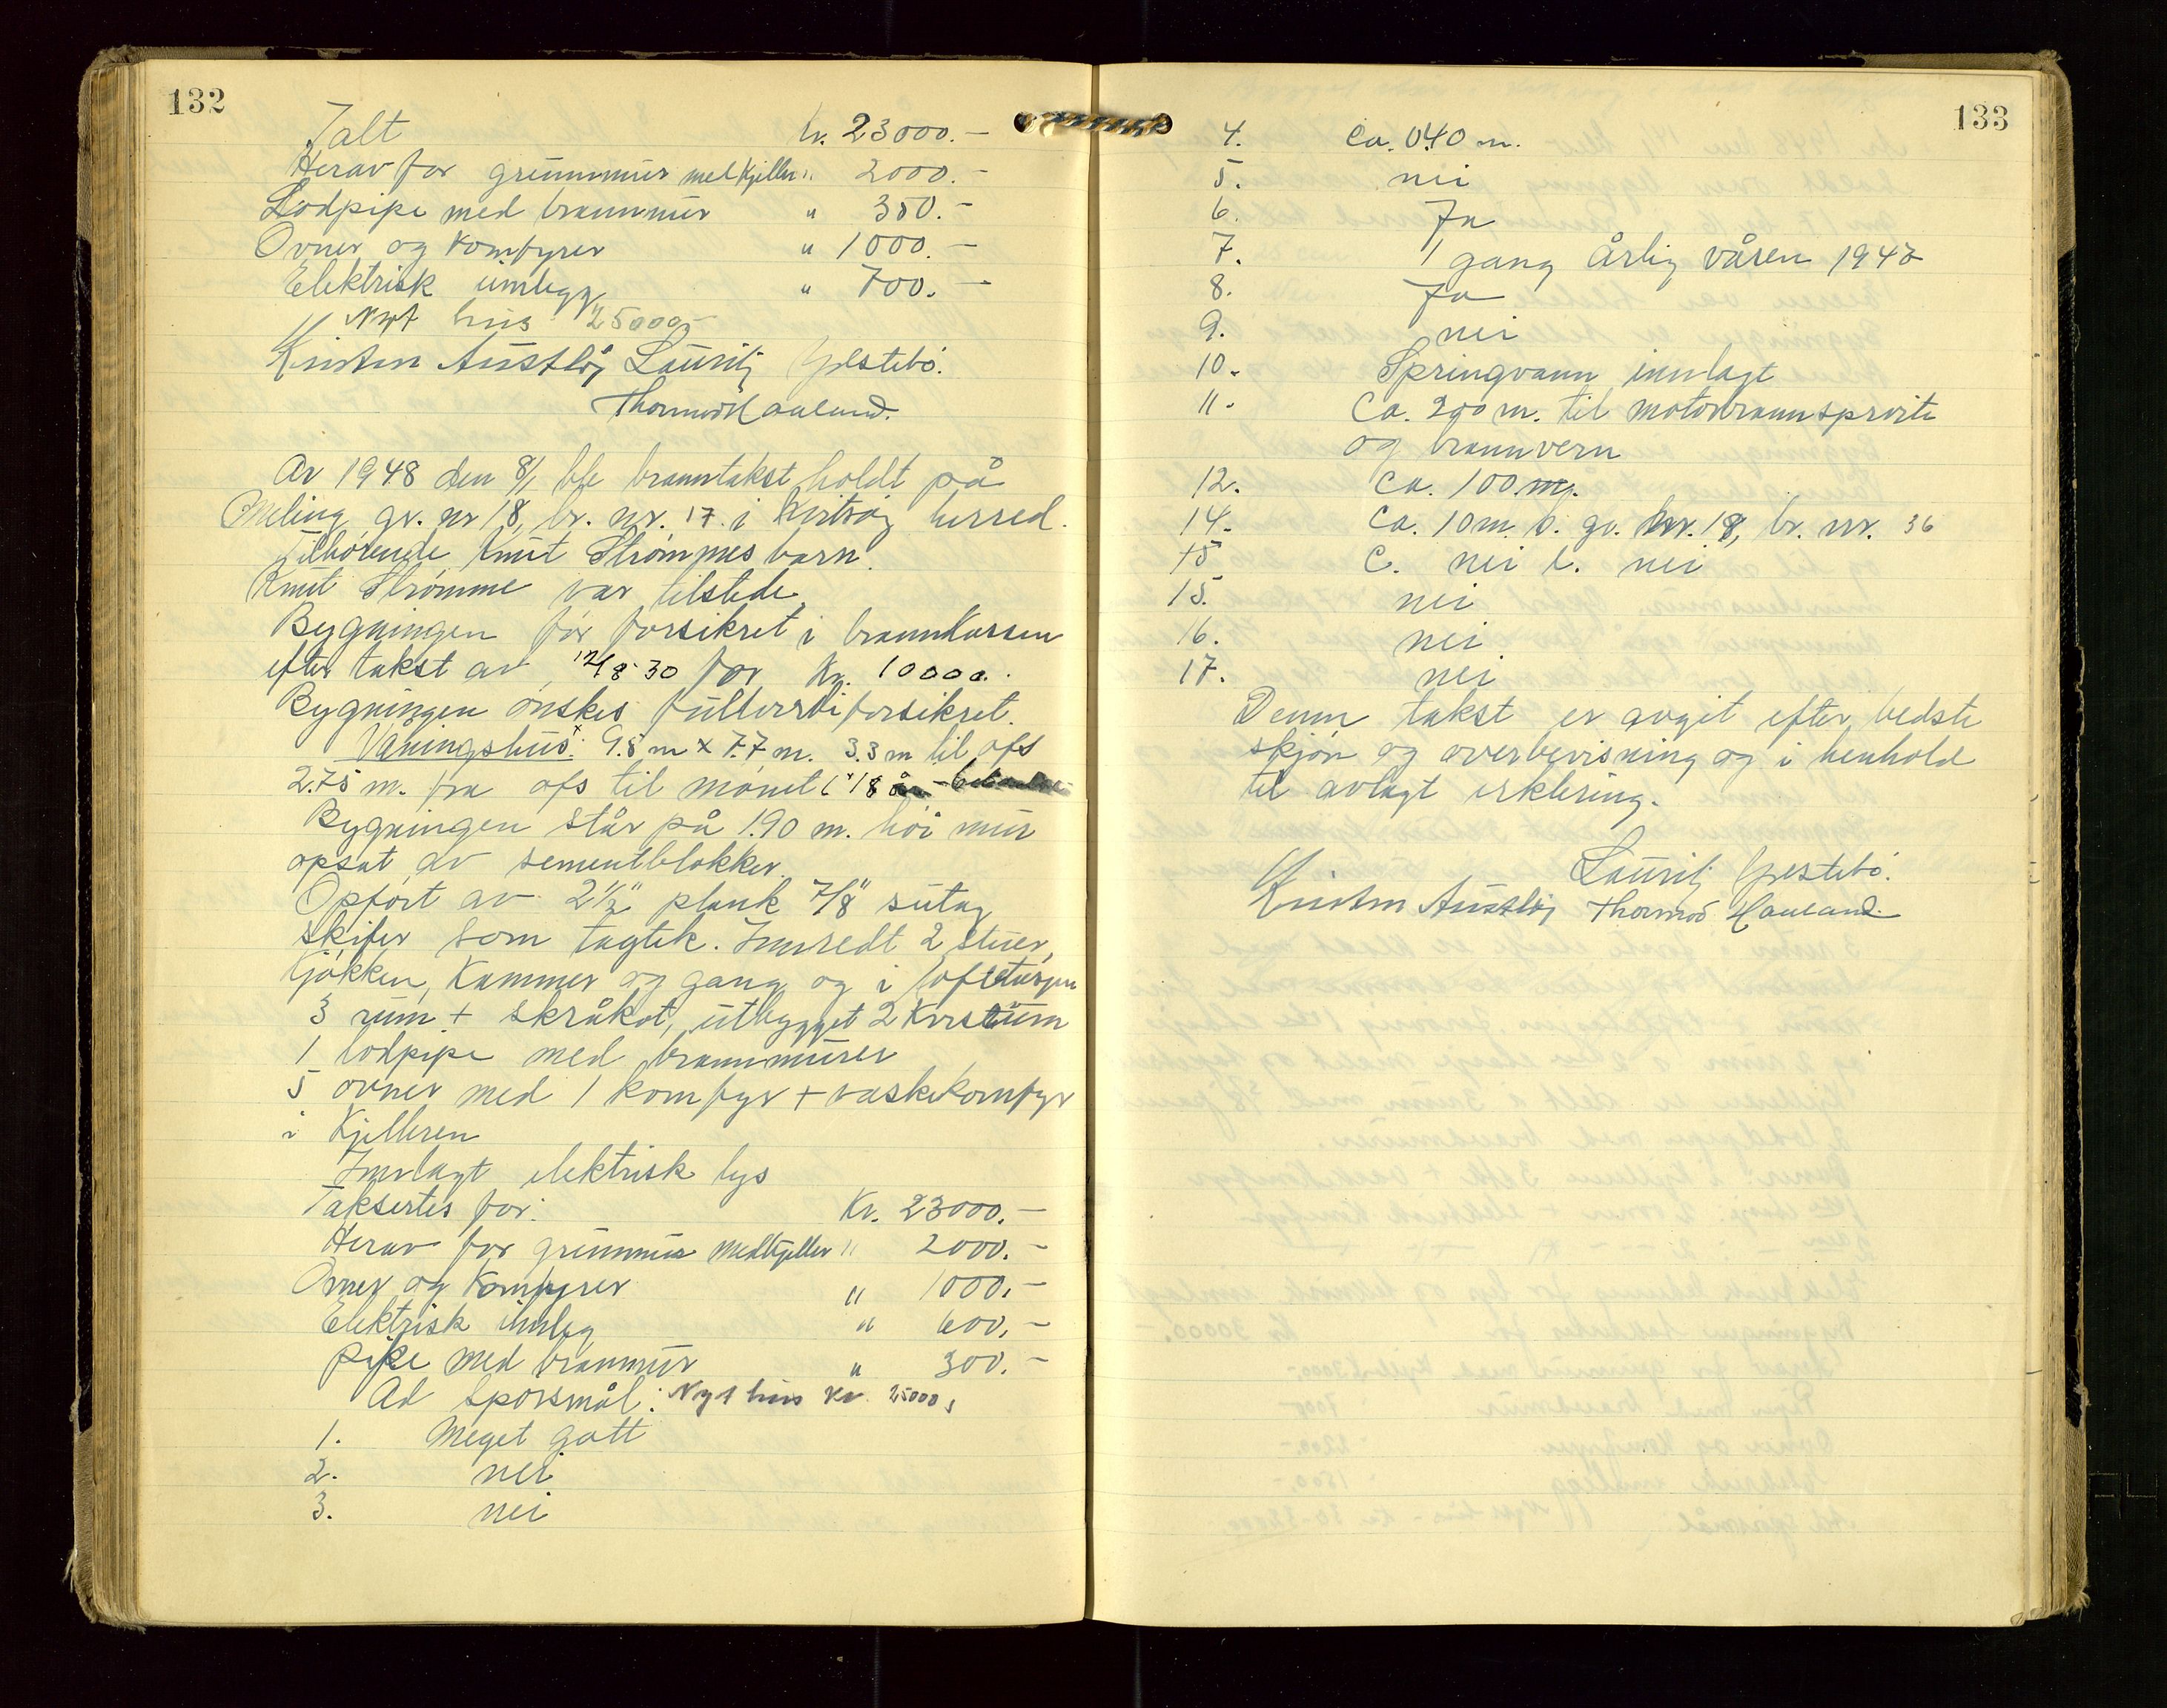 132
Ialt kr. 23000.-
Herav for grunnmur med kjeller " 2000.-
Lodpipe med brannmur " 350.-
Ovner og Komfyrer " 1000.-
Elektrisk innlegg " 700.-
Nyt hus 25000,-
Kristen Austbø, Lauritz Gjestebø.
Thormod Hauland.
År 1948 den 8/1 ble branntakst holdt på
Meling gr. nr 18, br. nr. 17. i Kvitsøy herred.
Tilhørende Knut Strømmes barn.
Knut Strømme var tilstede.
Bygningen før forsikret i brannkassen
efter takst av 12/8-30 for Kr. 10000.
Bygningen ønskes fullverdiforsikret.
Våningshus: 9.8 m x 7.7 m. 3.3 m til ofs
2.75 m. fra ofs til mønet
Bygningen står på 1.90 m. høi mur
opsat av sementblokker.
Opført av 2½" plank 7/8" sutag
skifer som tagtek. Innredt 2 stuer,
kjøkken, Kammer og gang og i loftetasjen
3 rum + skråkot, utbygget 2 Kvistrum
1 lodpipe med brannmurer
5 ovner med 1 komfyr + vaskekomfyr
i Kjelleren
Innlagt elektrisk lys
Taksertes for: Kr. 23000.-
Herav for grunnmur med kjeller " 2000.-
Ovner og Komfyrer " 1000.-
Elektrisk innleg " 600.-
Pipe med brannmur " 300.-
Ad spørsmål: Nyt hus Kr. 25000,
1. Meget godt
2. nei
3. nei
133
4. Ca. 0.40 m.
5. nei
6. Ja
7. 1 gang årlig våren 1947
8. Ja
9. nei
10. Springvann innlagt
11. Ca. 200 m. til motorbrannsprøite
og brannvern
12. Ca. 100 m.
14. Ca. 10 m. b. gr. nr. 18, br. nr. 36
15 C. nei b. nei
15. nei
16. nei
17. nei
Denne takst er avgit efter bedste
skjøn og overbevisning og i henhold
til avlagt erklering.
Lauritz Gjestebø.
Kristen Austbø, Thormod Hauland.